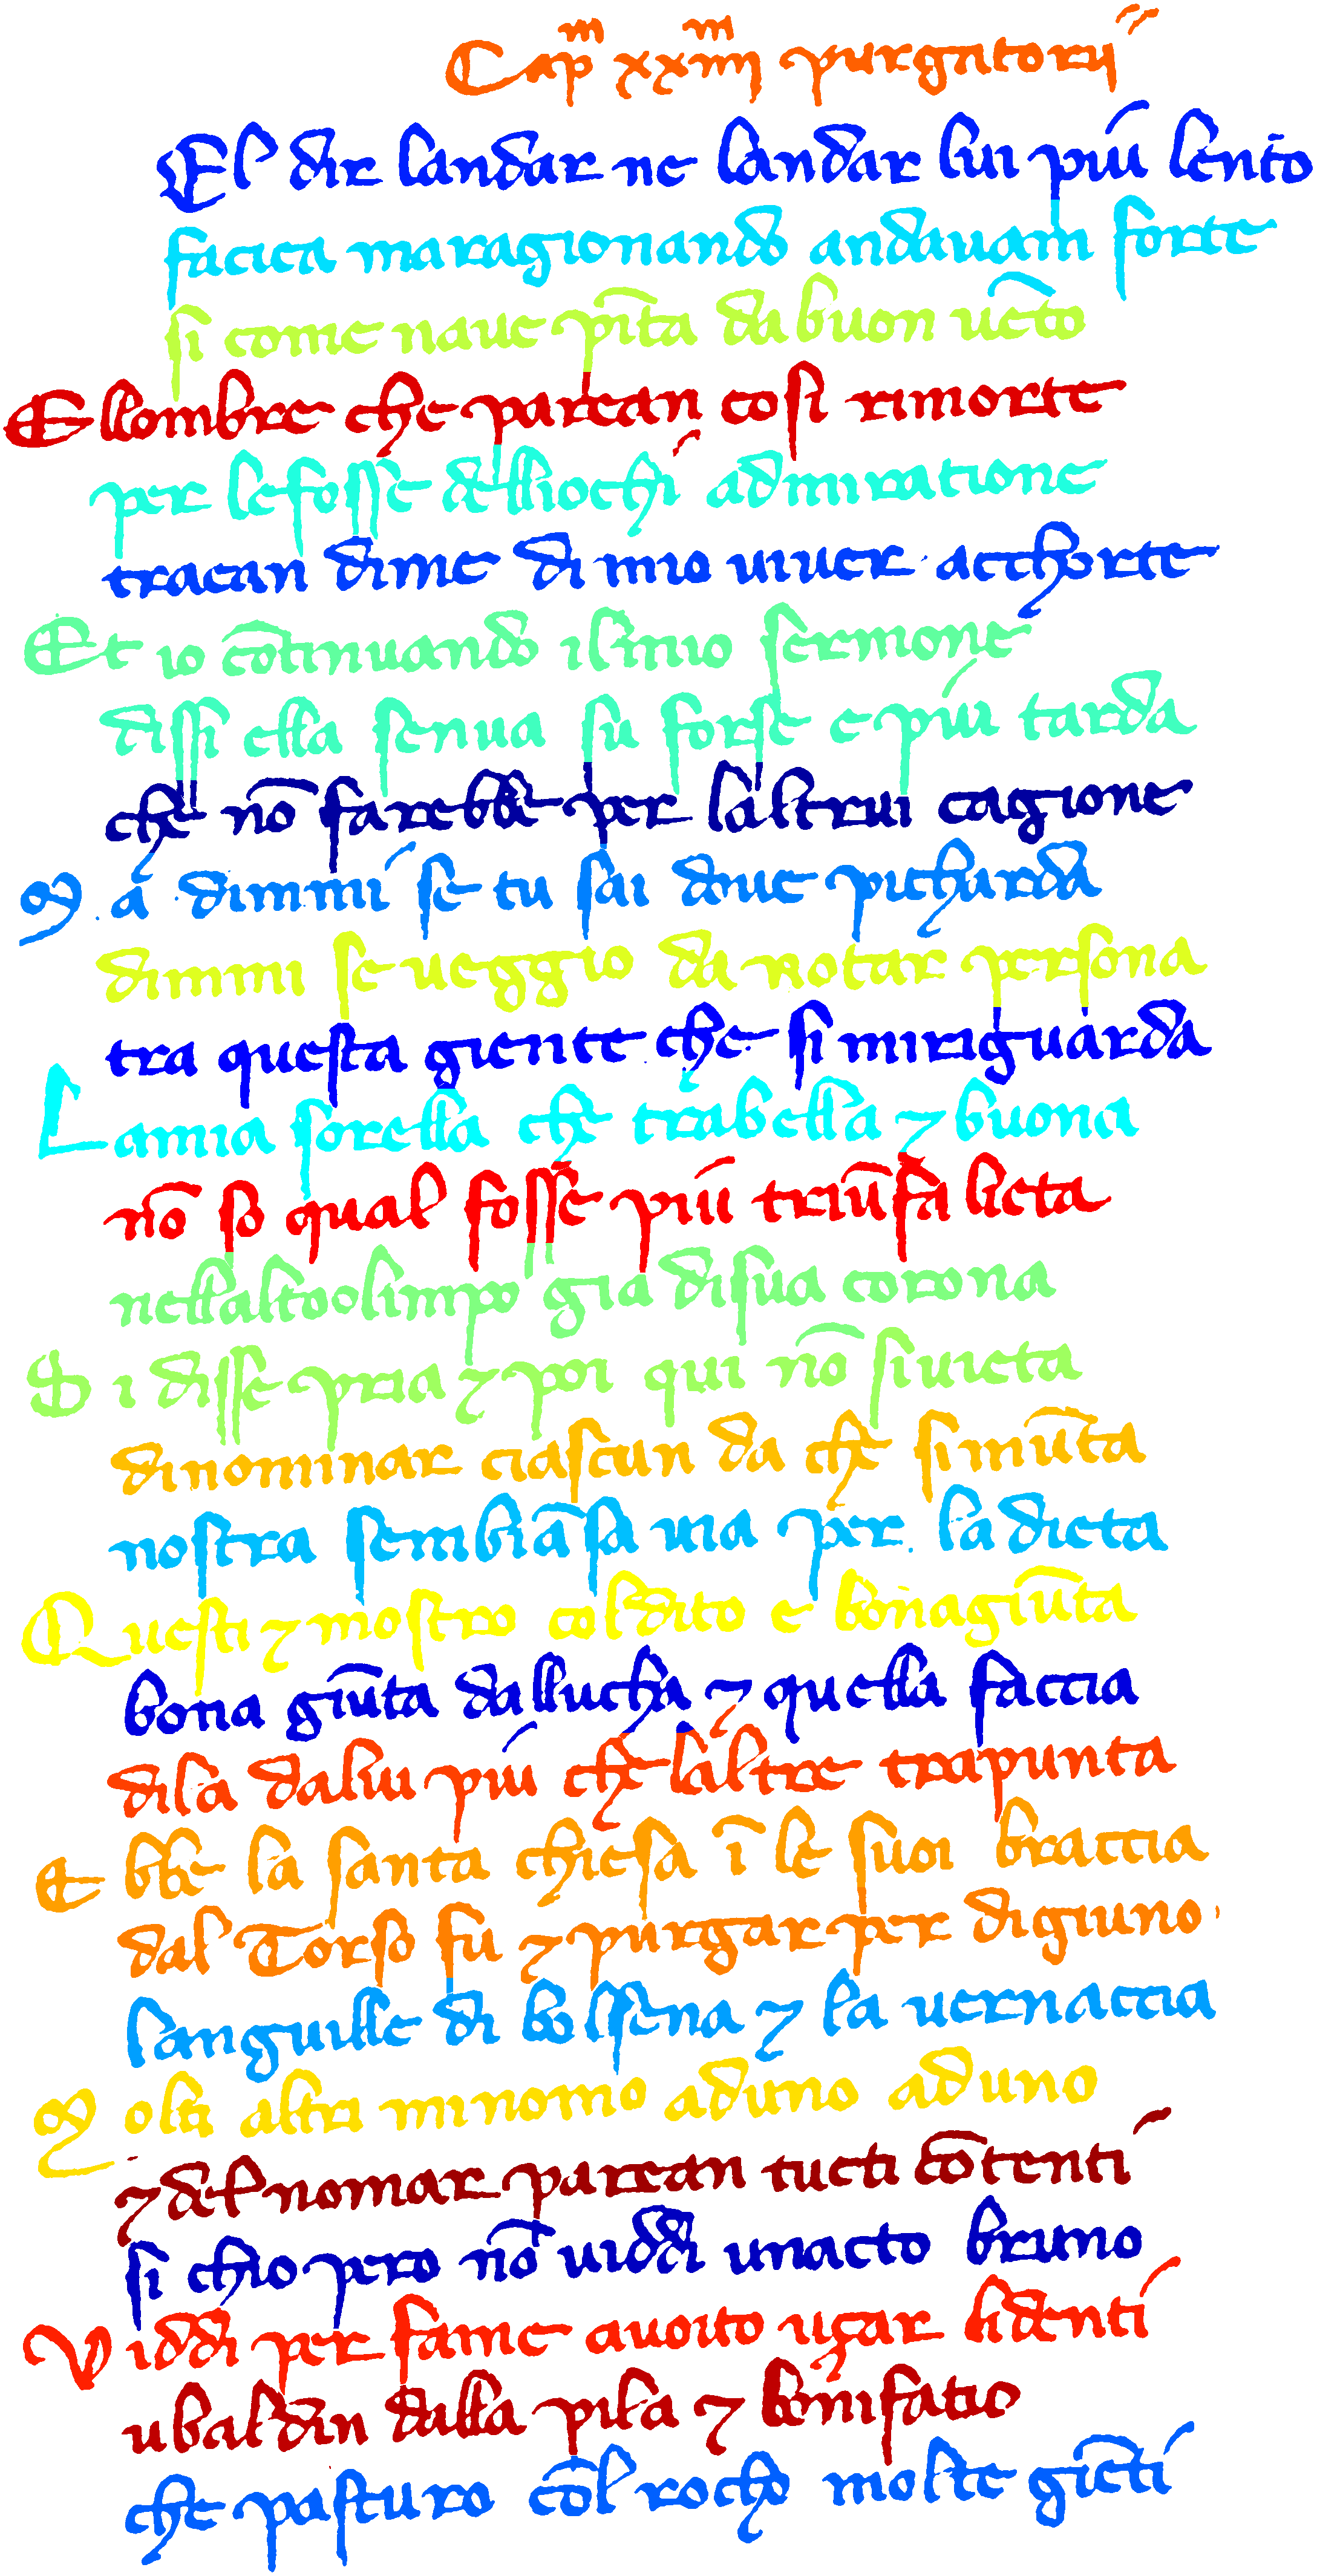 Capͫ xxiiiͫj purgatorij
El dir landar ne landar lui piu lento
facıea maragionando andauam forte
si come naue pīta da buon uēto
Ellombre che parean cosi rimorte
per lefosse delliochi admiratione
traean dime di mio uiuer acchorte
Et io cōtinuando ilmio sermone
dissi ella senua su forse e piu tarda
che nō farebbe per laltrui cagione
Ma dimmi se tu sai doue picharda
dimmi se ueggio da notar persona
tra questa giente che si miriguarda
Lamia sorella che trabella ⁊ buona
nō so qual fosse piu triūfa lieta
nellaltoolimpo gia disua corona
Si disse pria ⁊ poi qui nō siuieta
dinominar ciascun da che simūta
nostra sembiāsa uia per la dieta
Questi ⁊ mostro col dito e bonagiūta
bona giūta dallucha ⁊ quella faccia
dila dalui piu che laltre trapunta
Ebbe la santa chiesa ī le suoi braccia
dal Torso fu ⁊ purgar per digiuno
languille di bolsena ⁊ la uernaccia
Molti altri minomo aduno aduno
⁊ del nomar parean tucti cōtenti
si chio pero nō uiddi unacto bruno
Viddi per fame auoito uçar lidenti
ubaldin dalla pila ⁊ bonifatio
che pasturo cōl rocho molte giēti